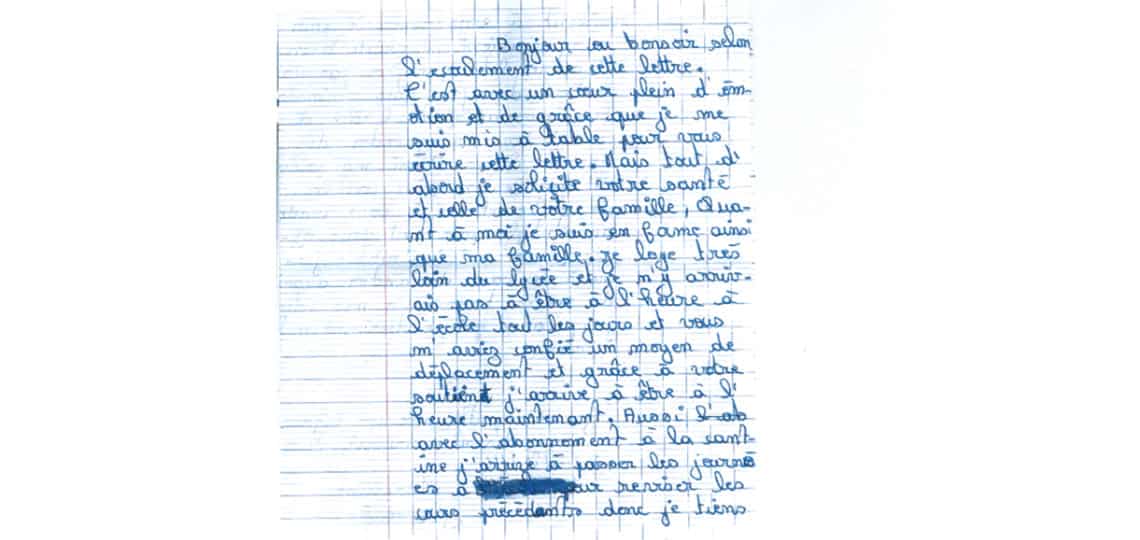 Bonjour ou bonsoir selon
l'esculement de cette lettre.
C'est avec un cœur plein d'ém-
otion et de grâce que je me
suis mis à table pour vous
écrire cette lettre. Mais tout d'
abord je soliçite votre santé
et celle de votre famille, Qua-
nt à moi je suis en forme ainsi
que ma famille. Je loge très
loin du lycée et je n'y arriv-
ais pas à être à l'heure à
l'école tout les jours et vous
m'aviez confié un moyen de
déplacement et grâce à votre
soutient j'arrive à être à l'
heure maintenant. Aussi l'ab
avec l'abonnement à la cant-
ine j'arrive à passer les journé
es à pour reviser les
cours précédants donc je tiens